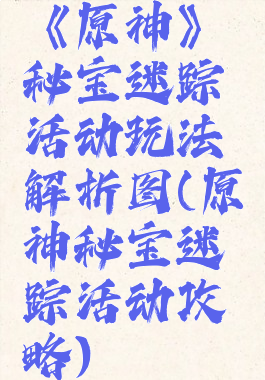 《原神》
秘宝迷踪
活动玩法
解析图(原
神秘宝迷
踪活动攻
略)